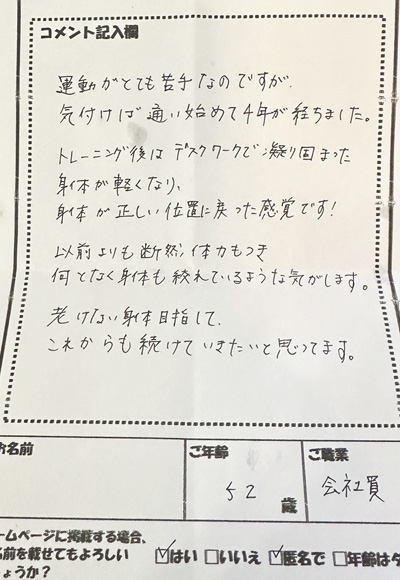 コメント記入欄
運動がとても苦手なのですが、
気付けば通い始めて4年が経ちました。
トレーニング後はデスクワークで凝り固まった
身体が軽くなり、
身体が正しい位置に戻った感覚です!
以前よりも断然体力もつき
何となく身体も絞れているような気がします。
老けない身体目指して、
これからも続けていきたいと思ってます。
お名前
ご年齢
ご職業
52 歳
会社員
ームページに掲載する場合、
名前を載せてもよろしい
しょうか?
☑はい □いいえ ☑匿名で □年齢は